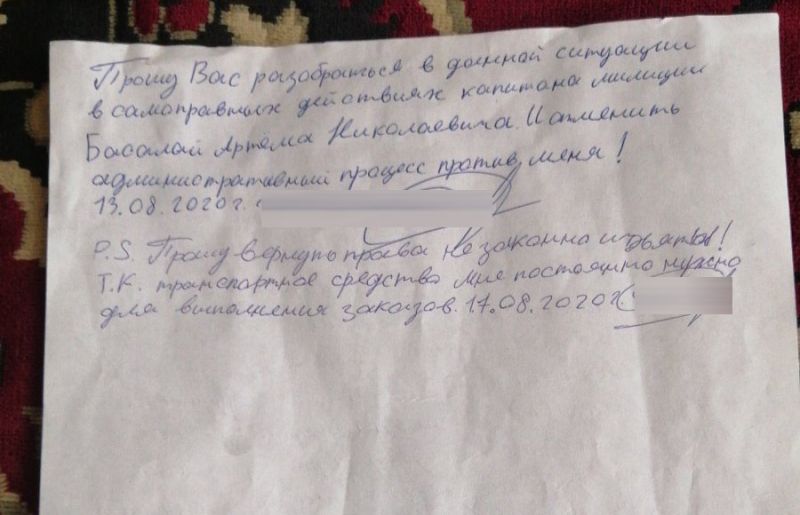 Прошу Вас разобраться в данной ситуации
в самоправных действиях капитана милиции
Басалай Артёма Николаевича. И отменить
административный процесс против меня!
13.08.2020г.
P.S. Прошу вернуть права незаконно изъяты!
Т.К. транспортное средство мне постоянно нужно
для выполнения заказов. 17.08.2020г